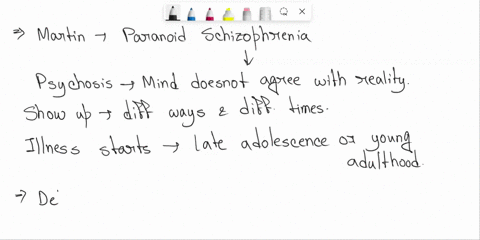 ⇒ Martin → Paranoid Schizophrenia
↓
Psychosis → Mind doesnot agree with reality.
Show up → diff ways & diff. times.
Illness starts → late adolescence or young
adulthood.
→ De